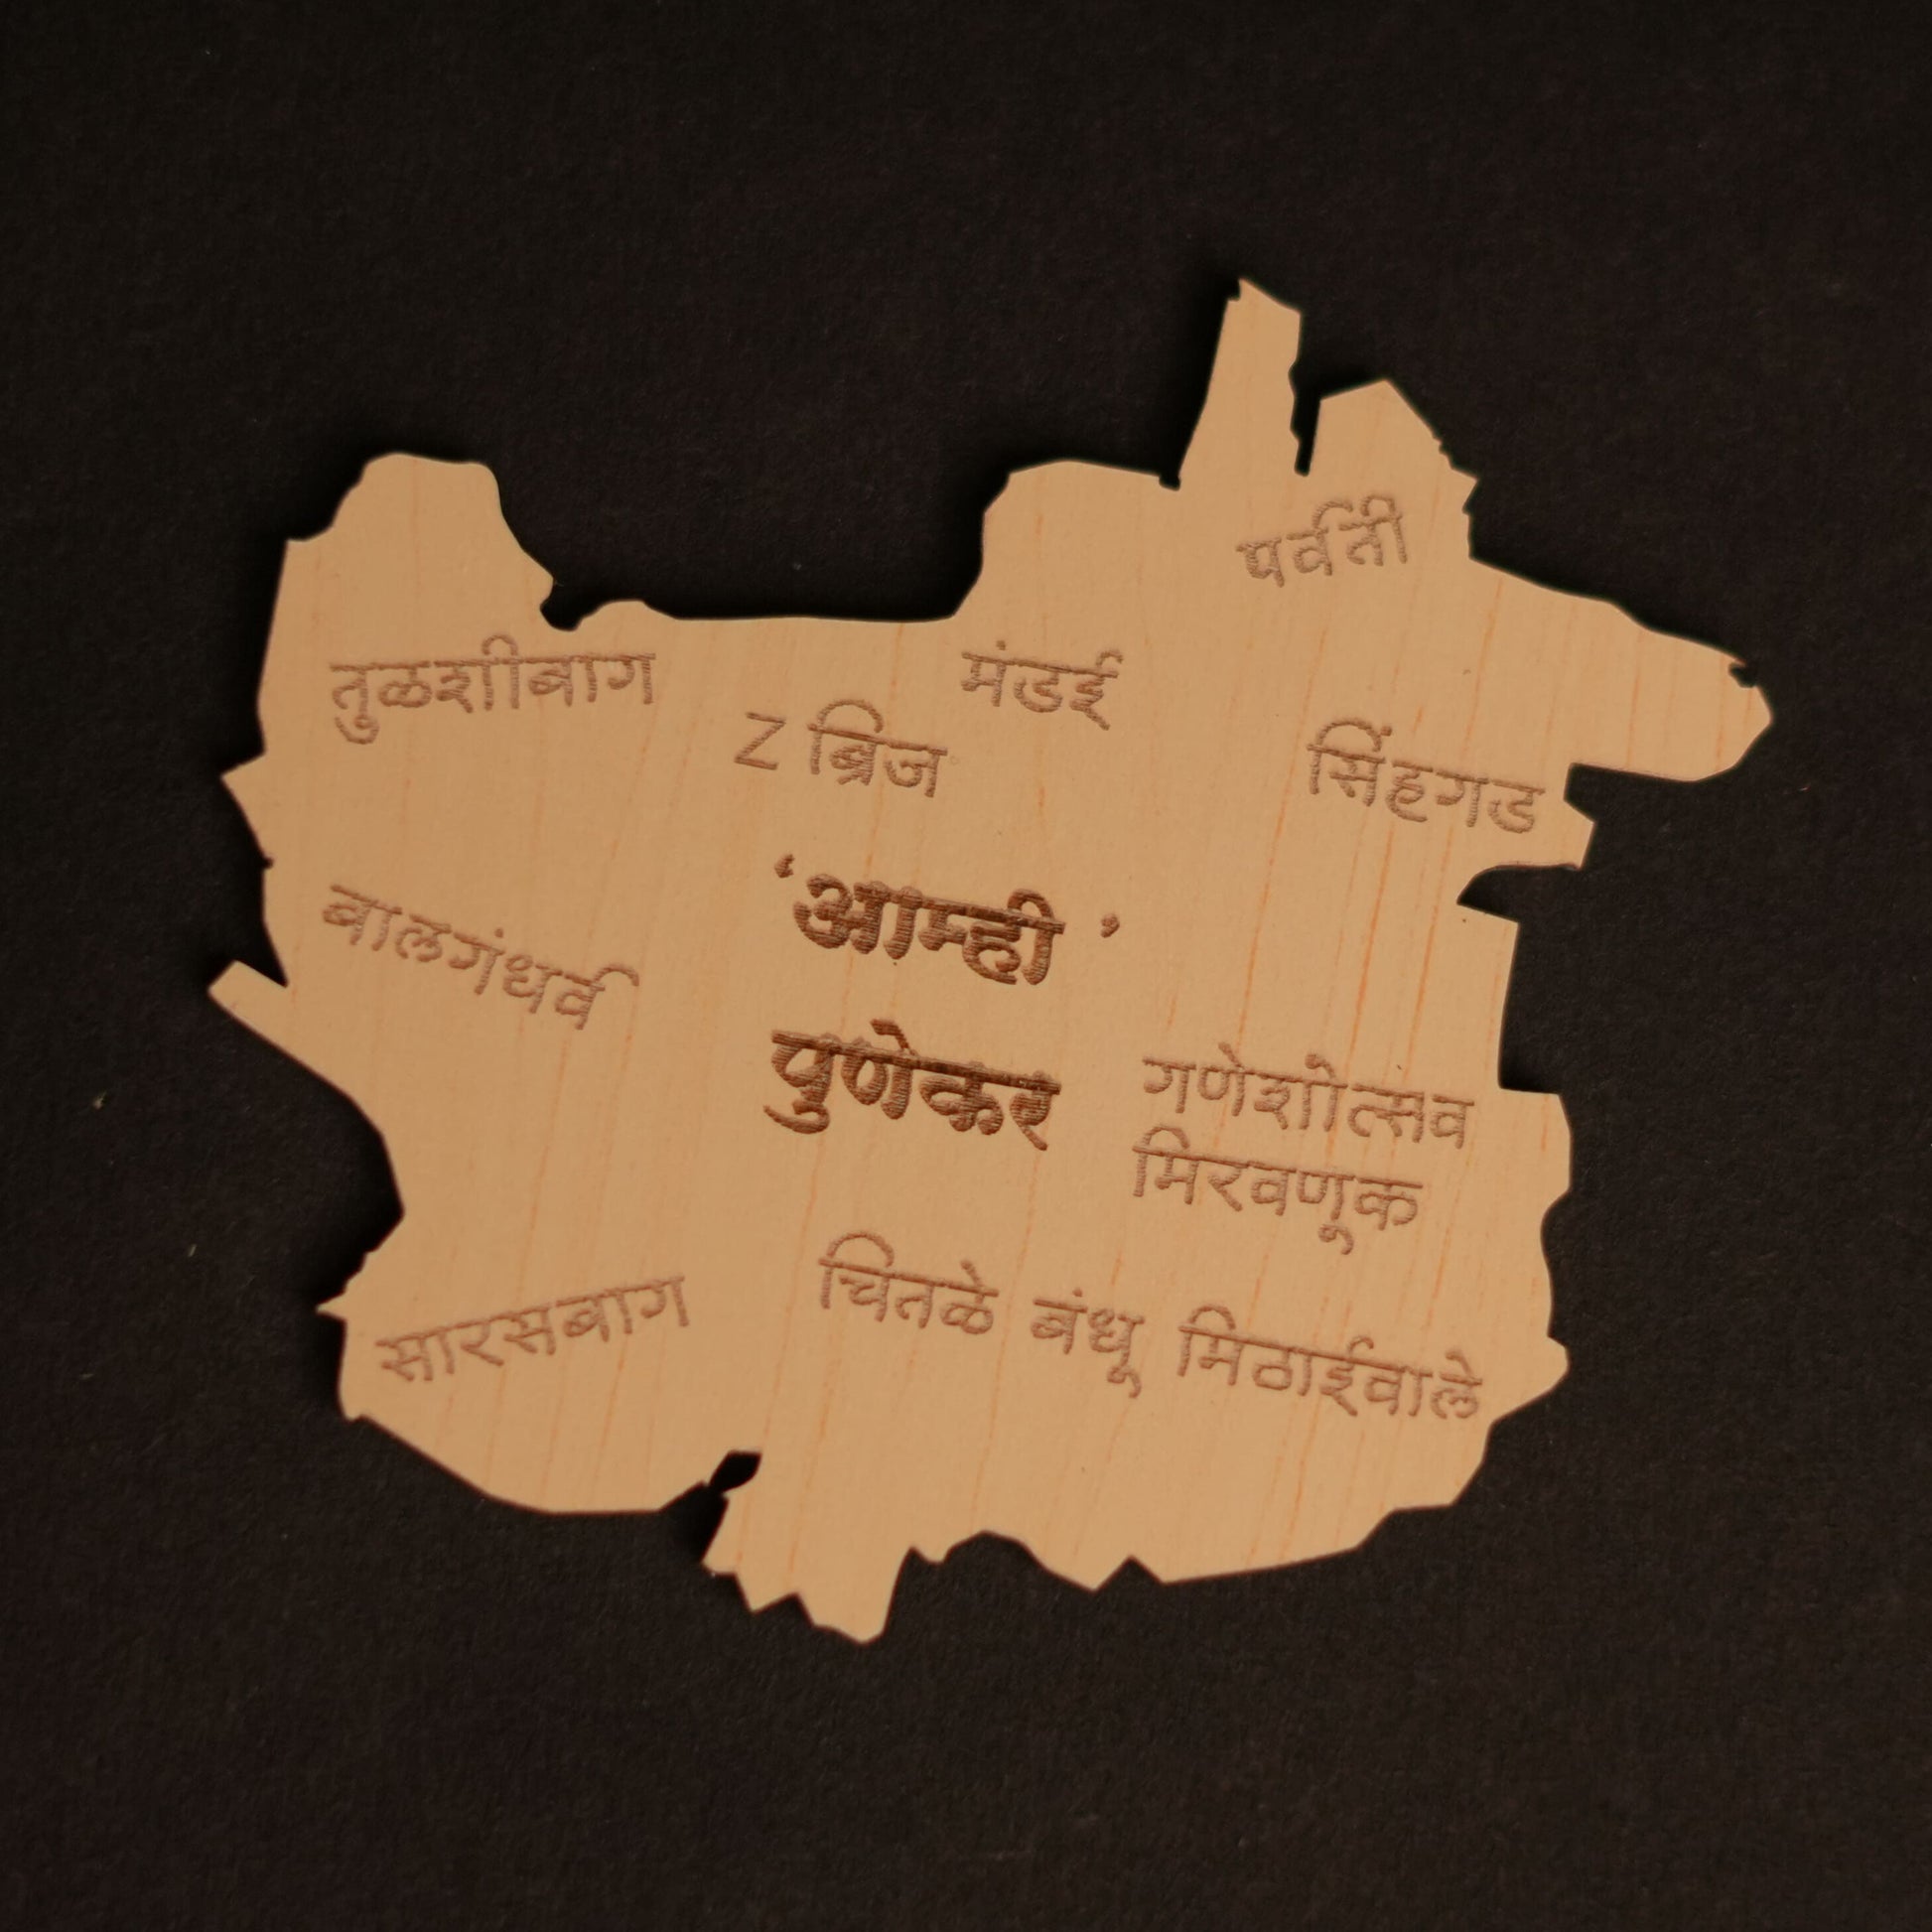 पर्वती
तुळशीबाग
मंडई
Z ब्रिज
सिंहगड
'आम्ही'
बालगंधर्व
पुणेकर
गणेशोत्सव
मिरवणूक
सारसबाग
चितळे बंधू मिठाईवाले